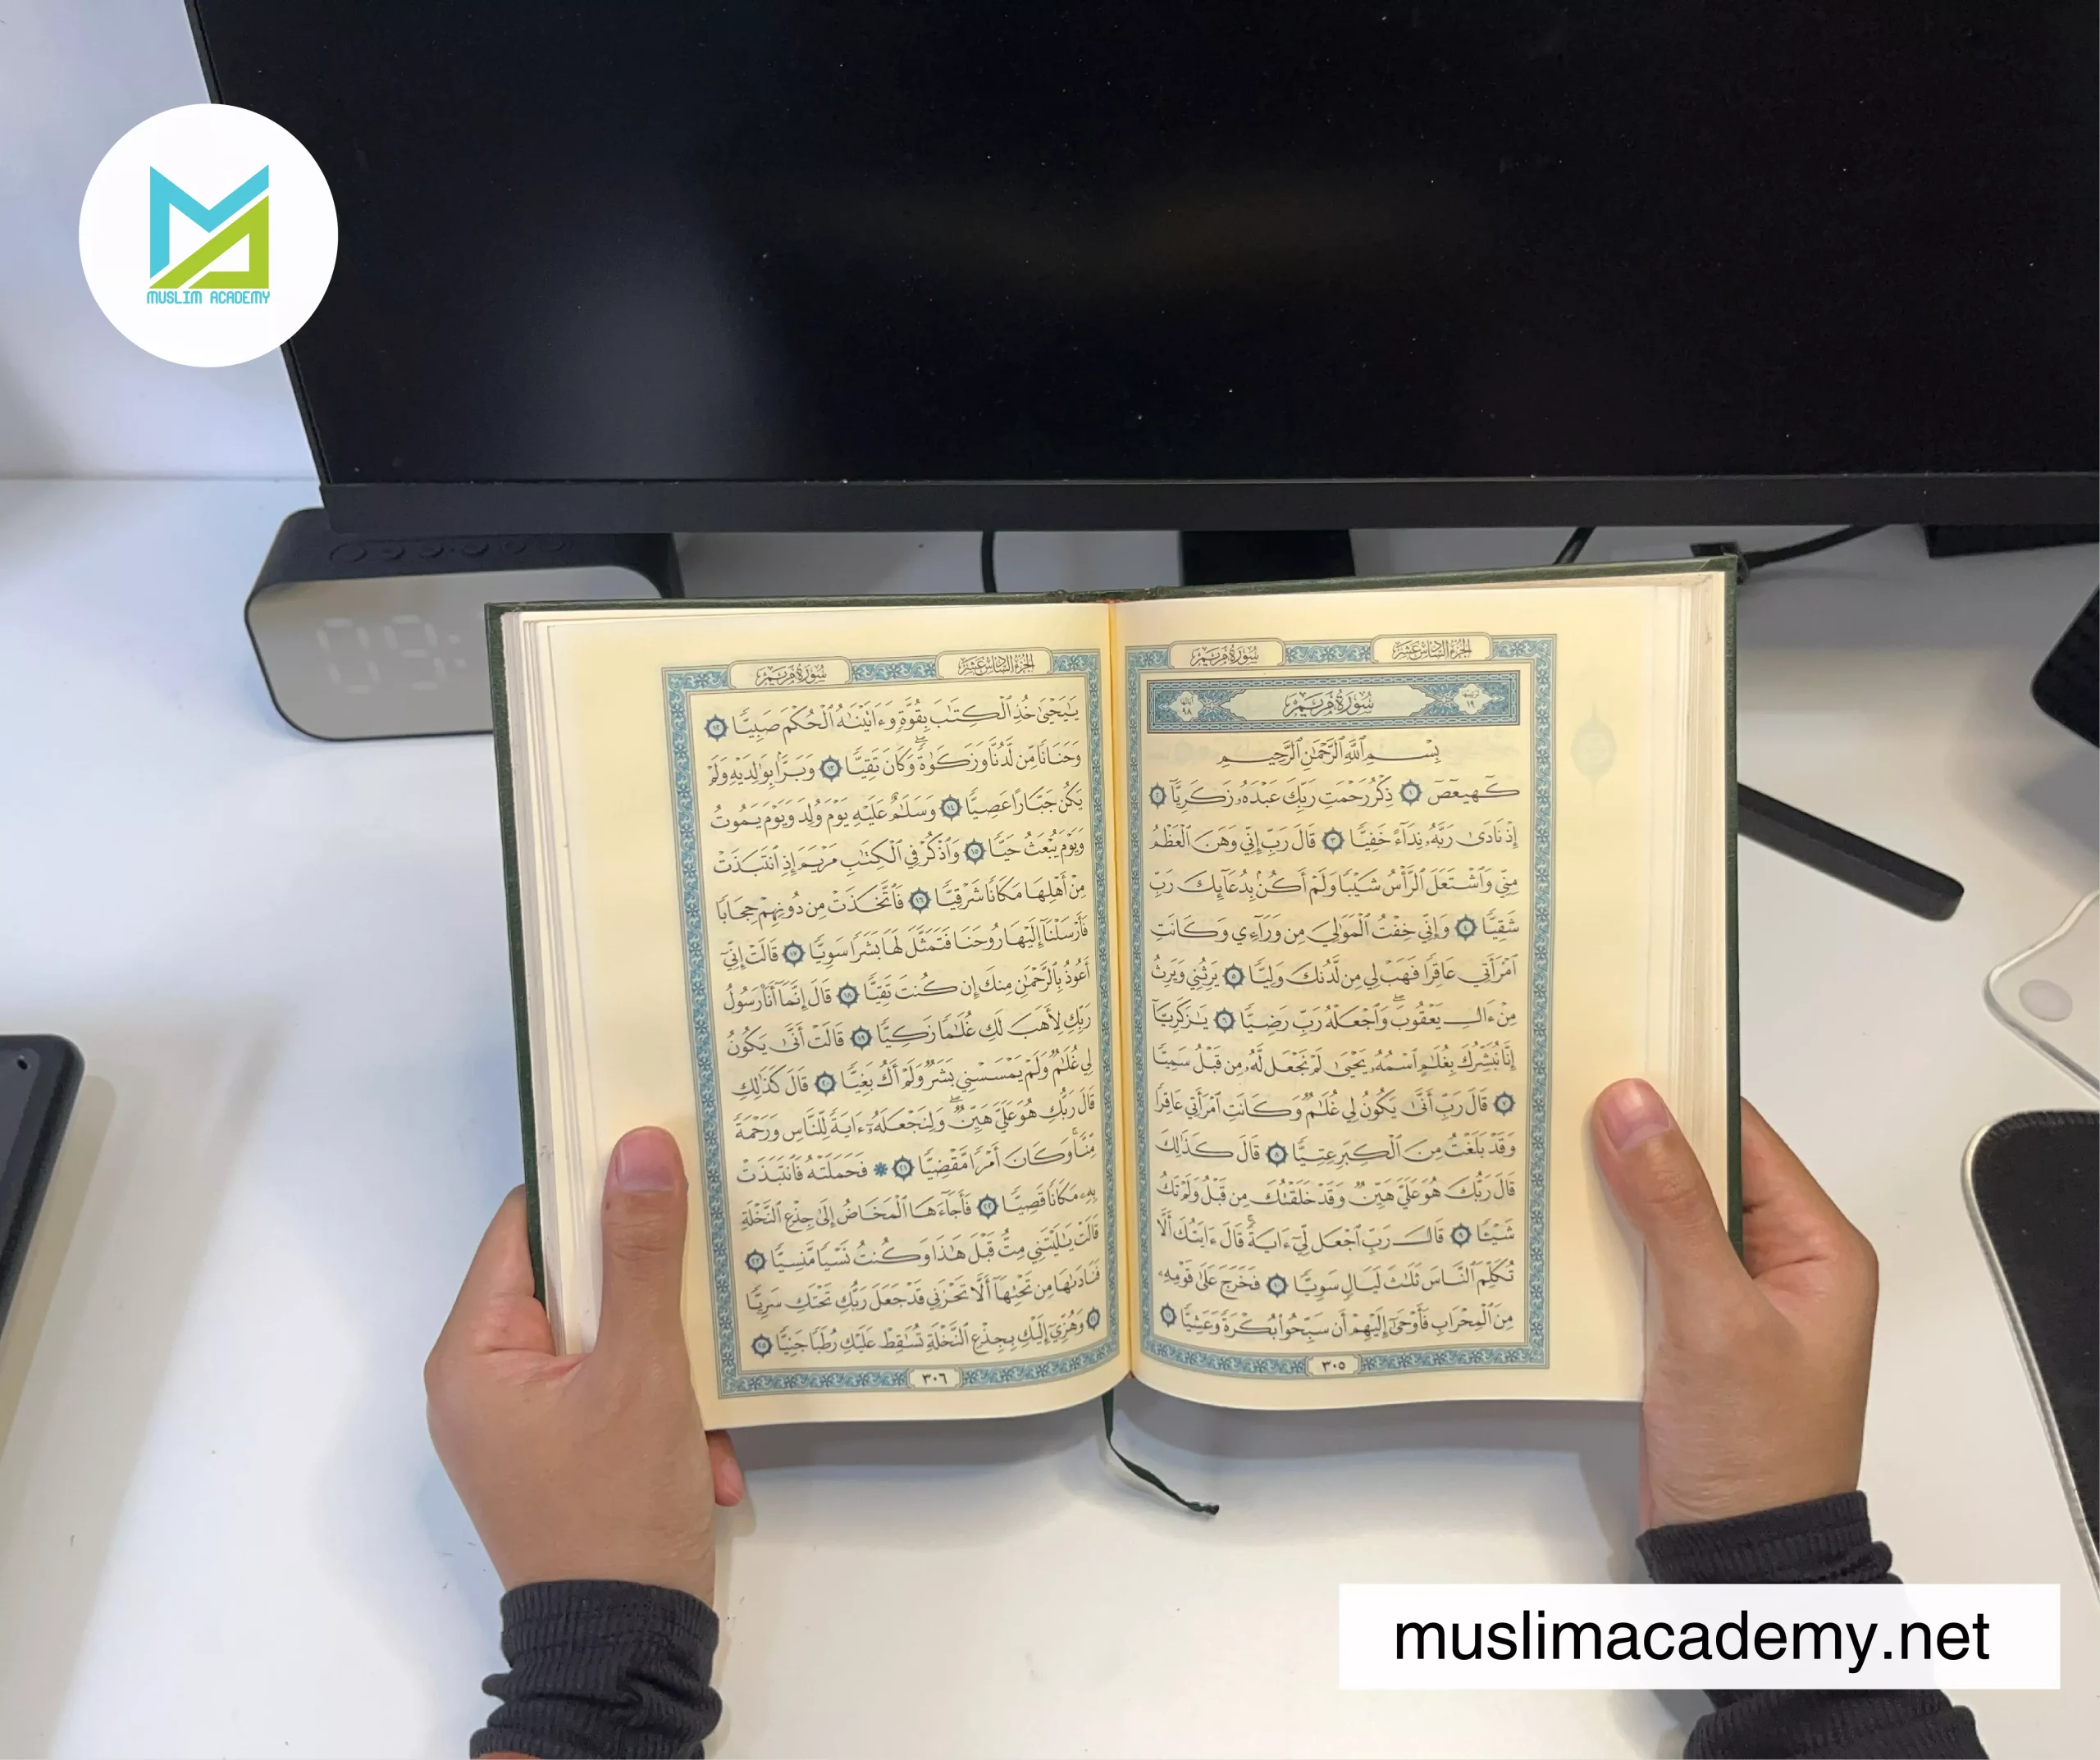 MUSLIM ACADEMY
الجزء السادس عشر
سورة مريم
ترتيبها ١٩
سورة مريم
آياتها ٩٨
بِسْمِ ٱللَّهِ ٱلرَّحْمَٰنِ ٱلرَّحِيمِ
كٓهيعٓصٓ ١ ذِكْرُ رَحْمَتِ رَبِّكَ عَبْدَهُۥ زَكَرِيَّآ ٢
إِذْ نَادَىٰ رَبَّهُۥ نِدَآءً خَفِيًّا ٣ قَالَ رَبِّ إِنِّي وَهَنَ ٱلْعَظْمُ
مِنِّي وَٱشْتَعَلَ ٱلرَّأْسُ شَيْبًا وَلَمْ أَكُنۢ بِدُعَآئِكَ رَبِّ
شَقِيًّا ٤ وَإِنِّي خِفْتُ ٱلْمَوَٰلِيَ مِن وَرَآءِي وَكَانَتِ
ٱمْرَأَتِي عَاقِرًا فَهَبْ لِي مِن لَّدُنكَ وَلِيًّا ٥ يَرِثُنِي وَيَرِثُ
مِنْ ءَالِ يَعْقُوبَۖ وَٱجْعَلْهُ رَبِّ رَضِيًّا ٦ يَٰزَكَرِيَّآ
إِنَّا نُبَشِّرُكَ بِغُلَٰمٍ ٱسْمُهُۥ يَحْيَىٰ لَمْ نَجْعَل لَّهُۥ مِن قَبْلُ سَمِيًّا
٧ قَالَ رَبِّ أَنَّىٰ يَكُونُ لِي غُلَٰمٌ وَكَانَتِ ٱمْرَأَتِي عَاقِرًا
وَقَدْ بَلَغْتُ مِنَ ٱلْكِبَرِ عِتِيًّا ٨ قَالَ كَذَٰلِكَ
قَالَ رَبُّكَ هُوَ عَلَيَّ هَيِّنٌ وَقَدْ خَلَقْتُكَ مِن قَبْلُ وَلَمْ تَكُ
شَيْـًٔا ٩ قَالَ رَبِّ ٱجْعَل لِّيٓ ءَايَةًۚ قَالَ ءَايَتُكَ أَلَّا
تُكَلِّمَ ٱلنَّاسَ ثَلَٰثَ لَيَالٍ سَوِيًّا ١٠ فَخَرَجَ عَلَىٰ قَوْمِهِۦ
مِنَ ٱلْمِحْرَابِ فَأَوْحَىٰٓ إِلَيْهِمْ أَن سَبِّحُوا۟ بُكْرَةً وَعَشِيًّا ١١
٣٠٥
الجزء السادس عشر
سورة مريم
يَٰيَحْيَىٰ خُذِ ٱلْكِتَٰبَ بِقُوَّةٍۖ وَءَاتَيْنَٰهُ ٱلْحُكْمَ صَبِيًّا ١٢
وَحَنَانًا مِّن لَّدُنَّا وَزَكَوٰةًۖ وَكَانَ تَقِيًّا ١٣ وَبَرًّۢا بِوَٰلِدَيْهِ وَلَمْ
يَكُن جَبَّارًا عَصِيًّا ١٤ وَسَلَٰمٌ عَلَيْهِ يَوْمَ وُلِدَ وَيَوْمَ يَمُوتُ
وَيَوْمَ يُبْعَثُ حَيًّا ١٥ وَٱذْكُرْ فِي ٱلْكِتَٰبِ مَرْيَمَ إِذِ ٱنتَبَذَتْ
مِنْ أَهْلِهَا مَكَانًا شَرْقِيًّا ١٦ فَٱتَّخَذَتْ مِن دُونِهِمْ حِجَابًا
فَأَرْسَلْنَآ إِلَيْهَا رُوحَنَا فَتَمَثَّلَ لَهَا بَشَرًا سَوِيًّا ١٧ قَالَتْ إِنِّيٓ
أَعُوذُ بِٱلرَّحْمَٰنِ مِنكَ إِن كُنتَ تَقِيًّا ١٨ قَالَ إِنَّمَآ أَنَا۠ رَسُولُ
رَبِّكِ لِأَهَبَ لَكِ غُلَٰمًا زَكِيًّا ١٩ قَالَتْ أَنَّىٰ يَكُونُ
لِي غُلَٰمٌ وَلَمْ يَمْسَسْنِي بَشَرٌ وَلَمْ أَكُ بَغِيًّا ٢٠ قَالَ كَذَٰلِكِ
قَالَ رَبُّكِ هُوَ عَلَيَّ هَيِّنٌۖ وَلِنَجْعَلَهُۥٓ ءَايَةً لِّلنَّاسِ وَرَحْمَةً
مِّنَّاۚ وَكَانَ أَمْرًا مَّقْضِيًّا ٢١ ۞ فَحَمَلَتْهُ فَٱنتَبَذَتْ
بِهِۦ مَكَانًا قَصِيًّا ٢٢ فَأَجَآءَهَا ٱلْمَخَاضُ إِلَىٰ جِذْعِ ٱلنَّخْلَةِ
قَالَتْ يَٰلَيْتَنِي مِتُّ قَبْلَ هَٰذَا وَكُنتُ نَسْيًا مَّنسِيًّا ٢٣
فَنَادَىٰهَا مِن تَحْتِهَآ أَلَّا تَحْزَنِي قَدْ جَعَلَ رَبُّكِ تَحْتَكِ سَرِيًّا
٢٤ وَهُزِّيٓ إِلَيْكِ بِجِذْعِ ٱلنَّخْلَةِ تُسَٰقِطْ عَلَيْكِ رُطَبًا جَنِيًّا ٢٥
٣٠٦
muslimacademy.net